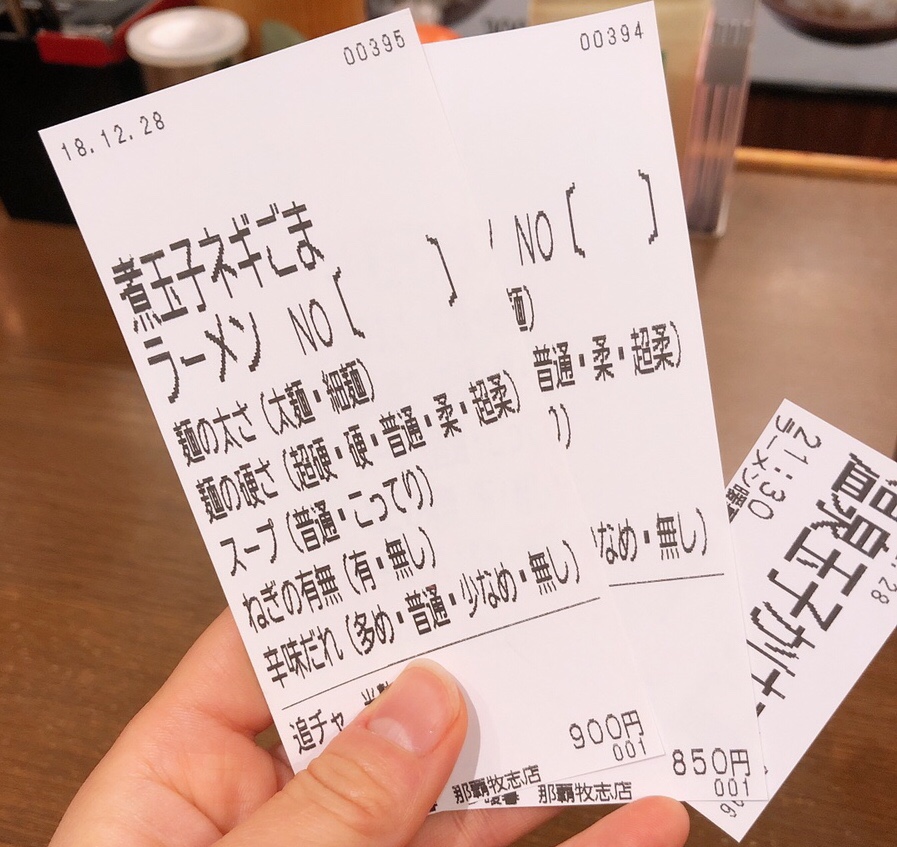 00395
18.12.28
煮玉子ネギごま
ラーメン NO[ ]
麺の太さ(太麺・細麺)
麺の硬さ(超硬・硬・普通・柔・超柔)
スープ(普通・こってり)
ねぎの有無(有・無し)
辛味だれ(多め・普通・少なめ・無し)
追チャ
900円
001
那覇牧志店
00394
NO[ ]
麺)
普通・柔・超柔)
なめ・無し)
850円
001
那覇牧志店
21:30
ラーメン暖暮
28
温泉玉子